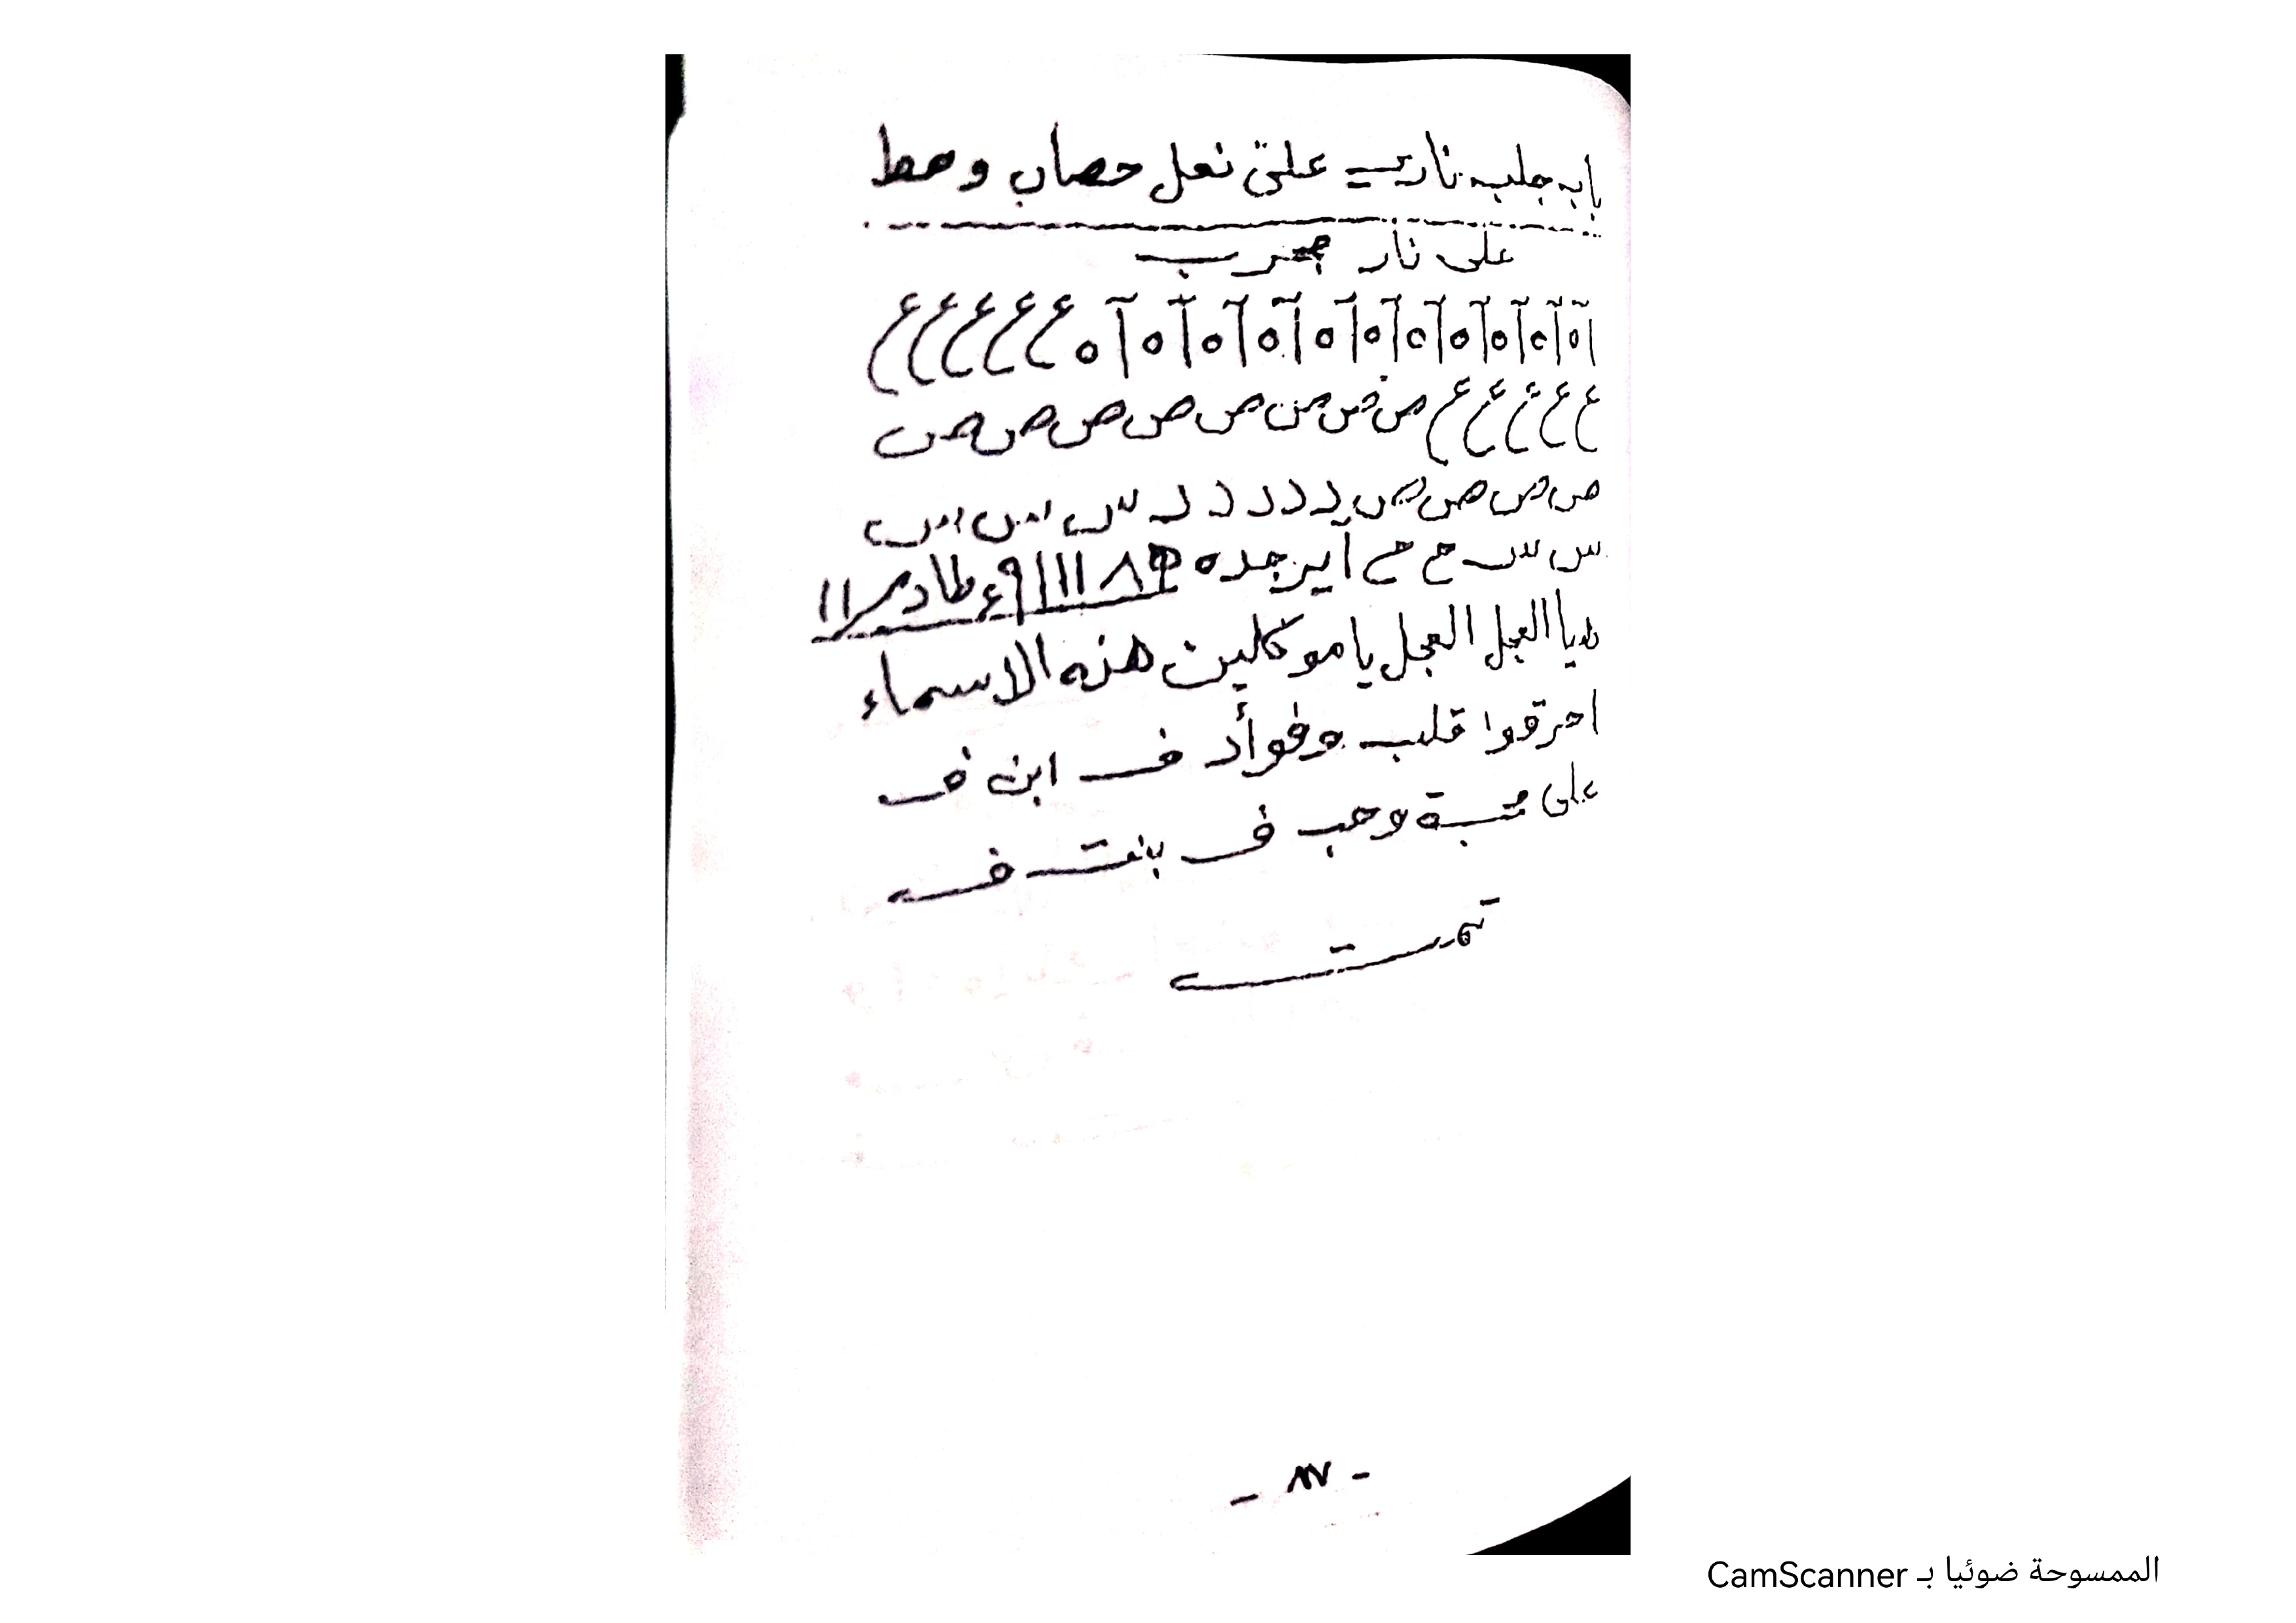 باب جلب ناري على نعل حصان وحط
على نار مجرب
آ ه آ ه آ ه آ ه آ ه آ ه آ ه آ ه آ ه آ ه آ ه ع ع ع ع ع
ع ع ع ع ع ص ص ص ص ص ص ص ص ص
ص ص ص ص د د د د د س س س
س س ح ح آير جده ٨ ااا ٩ ع طا د م اا
هيا العجل العجل يا موكلين هذه الاسماء
احرقوا قلب وفوأد ف ابن ف
على محبة وحب ف بنت ف
تمت
- ٨٧ -
الممسوحة ضوئيا بـ CamScanner